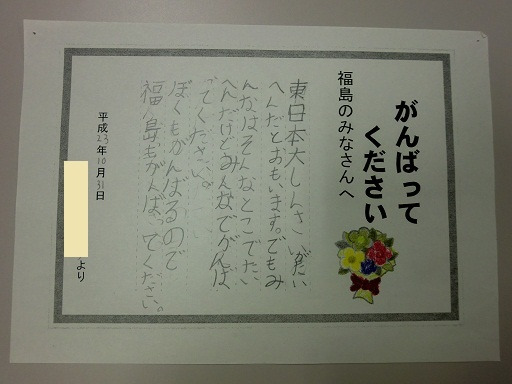 がんばって
ください
福島のみなさんへ
東日本大しんさいがたい
へんだとおもいます。でもみ
んなはそんなとこでたい
へんだけどみんなでがんば
ってください。
ぼくもがんばるので
福島もがんばってください。
平成23年10月31日
より